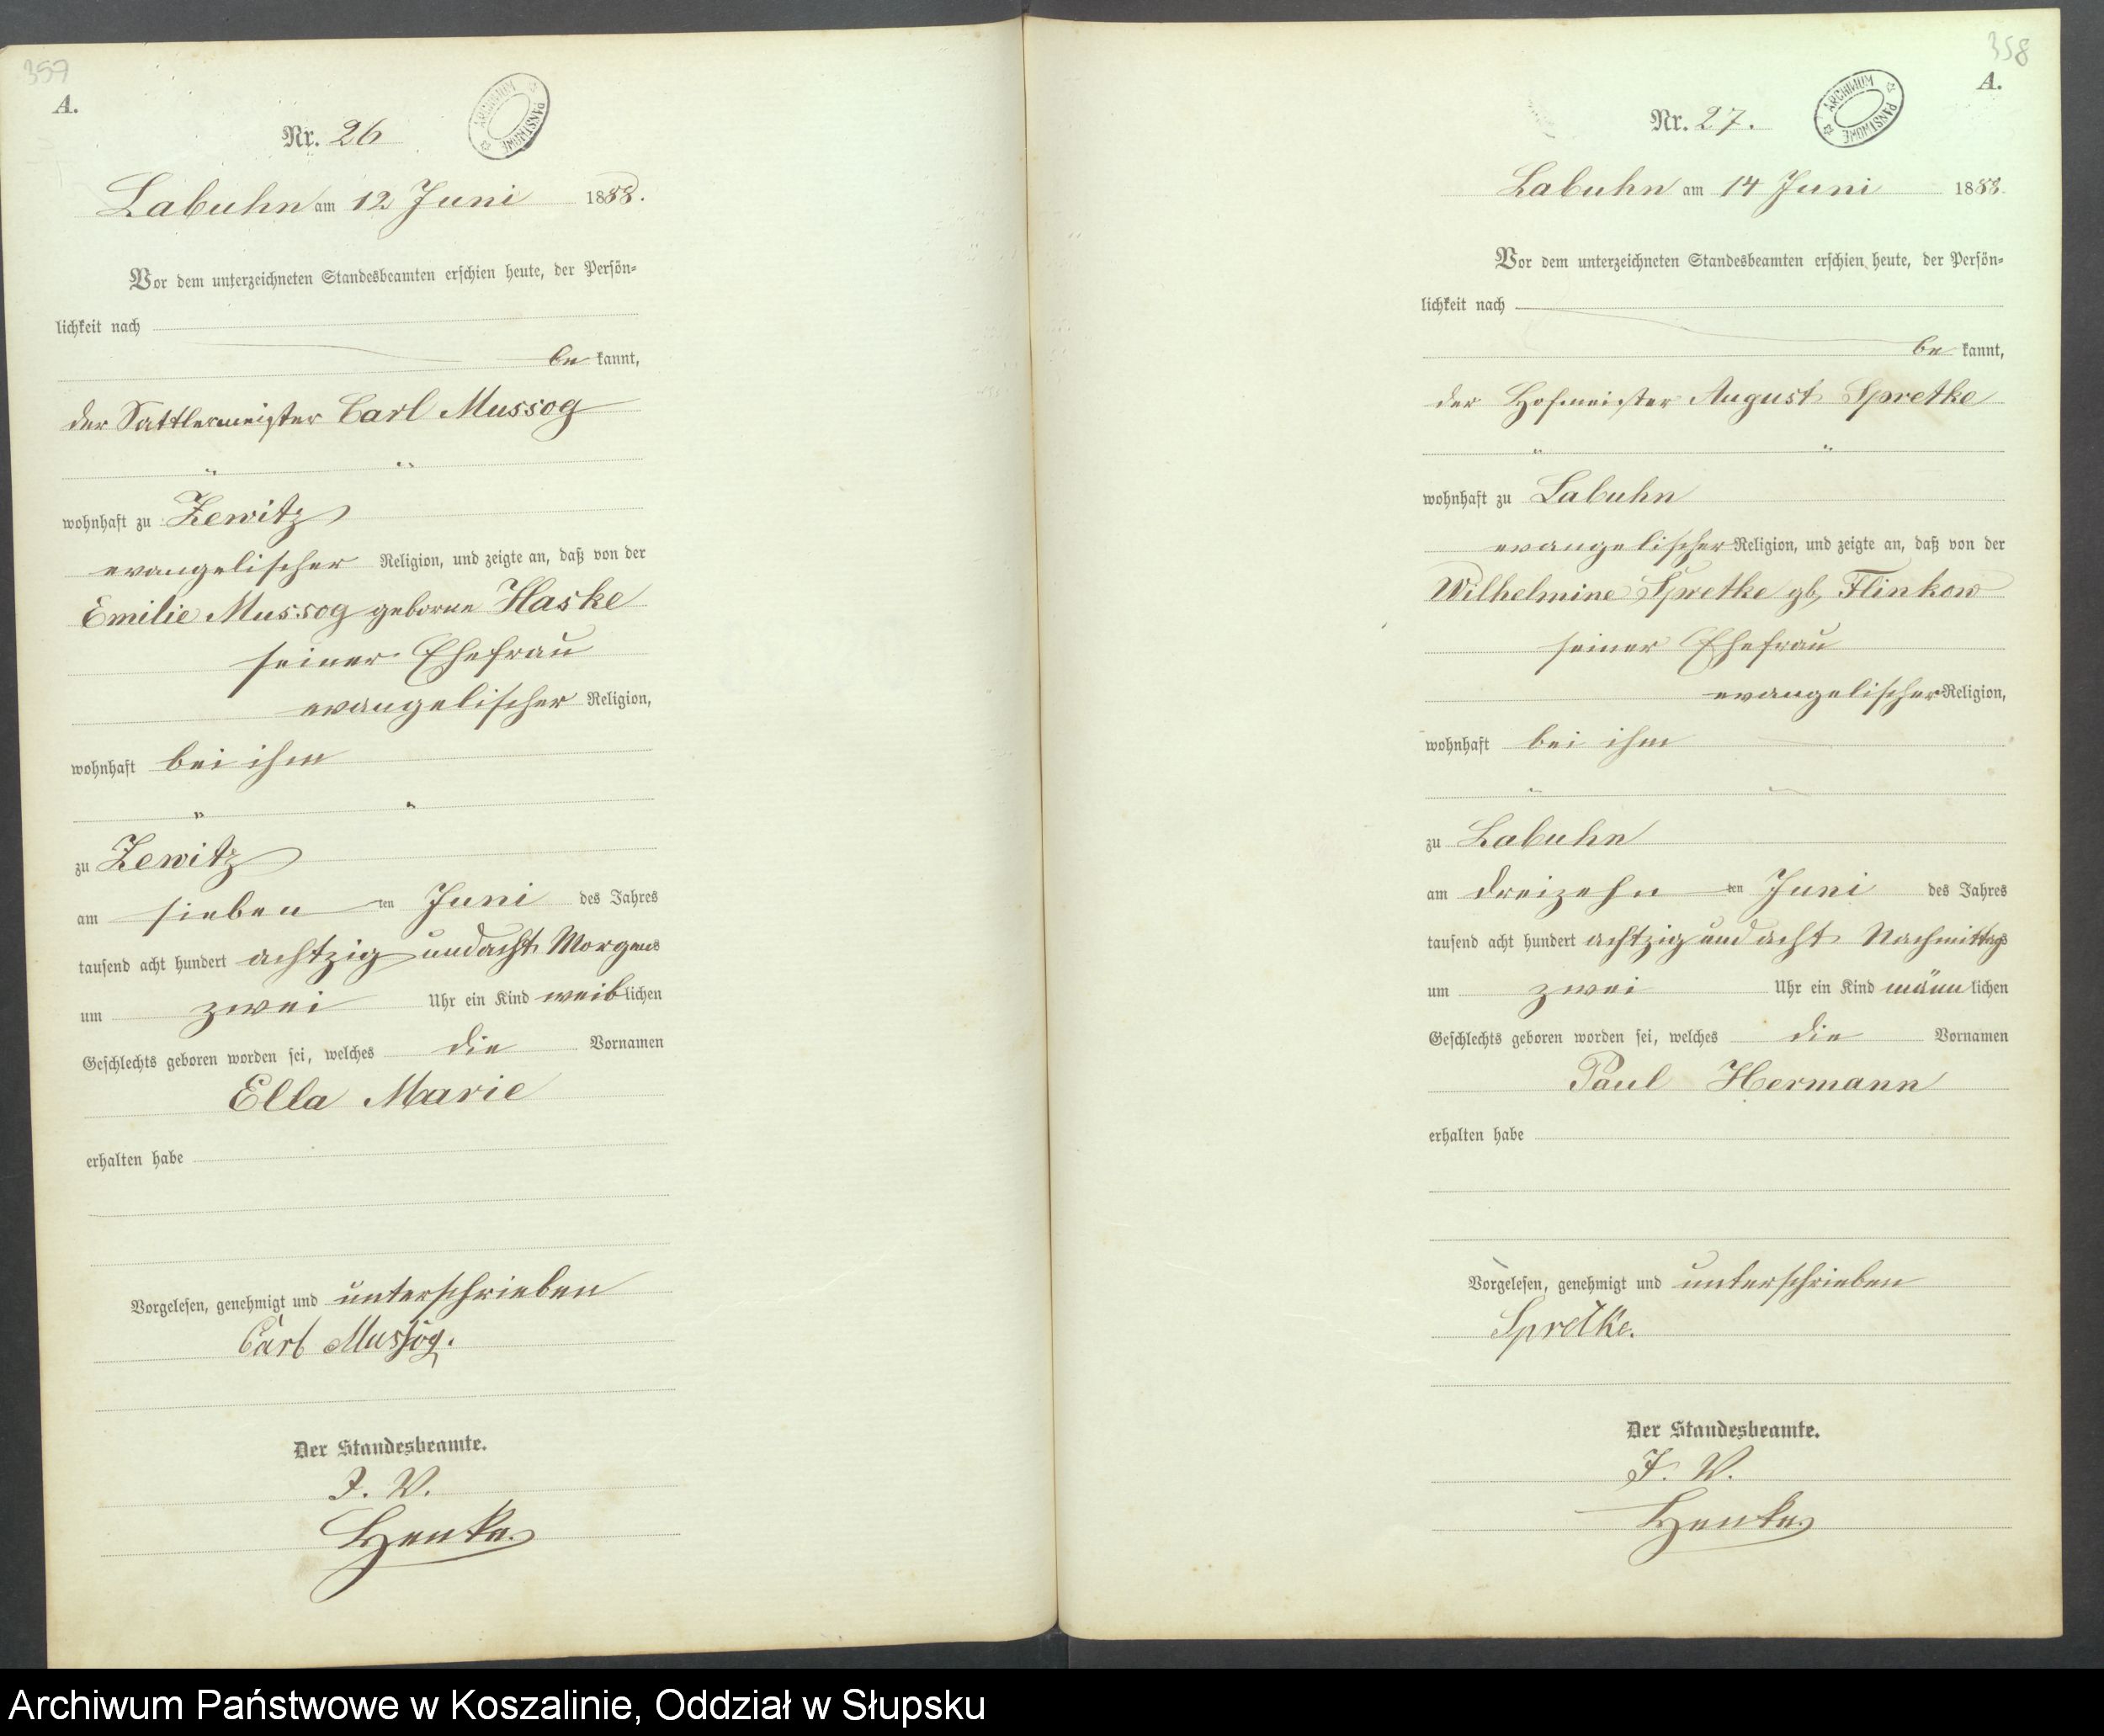 357
A.
Nr. 26
ARCHIWUM PAŃSTWOWE
Labuhn am 12 Juni 1888.
Vor dem unterzeichneten Standesbeamten erschien heute, der Persön-
lichkeit nach
be kannt,
der Sattlermeister Carl Mussog
" "
wohnhaft zu Zewitz
evangelischer Religion, und zeigte an, daß von der
Emilie Mussog geborne Haske
seiner Ehefrau
evangelischer Religion,
wohnhaft bei ihm
" "
zu Zewitz
am sieben ten Juni des Jahres
tausend acht hundert achtzig und acht Morgens
um zwei Uhr ein Kind weiblichen
Geschlechts geboren worden sei, welches die Vornamen
Ella Marie
erhalten habe
Vorgelesen, genehmigt und unterschrieben
Carl Mussog.
Der Standesbeamte.
J. V.
Henke
358
A.
Nr. 27.
ARCHIWUM PAŃSTWOWE
Labuhn am 14 Juni 1888.
Vor dem unterzeichneten Standesbeamten erschien heute, der Persön-
lichkeit nach
be kannt,
der Hofmeister August Spretke
" "
wohnhaft zu Labuhn
evangelischer Religion, und zeigte an, daß von der
Wilhelmine Spretke gb, Flinkow
seiner Ehefrau
evangelischer Religion,
wohnhaft bei ihm
" "
zu Labuhn
am dreizehn ten Juni des Jahres
tausend acht hundert achtzig und acht Nachmittags
um zwei Uhr ein Kind männlichen
Geschlechts geboren worden sei, welches die Vornamen
Paul Hermann
erhalten habe
Vorgelesen, genehmigt und unterschrieben
Spretke.
Der Standesbeamte.
J. V.
Henke
Archiwum Państwowe w Koszalinie, Oddział w Słupsku